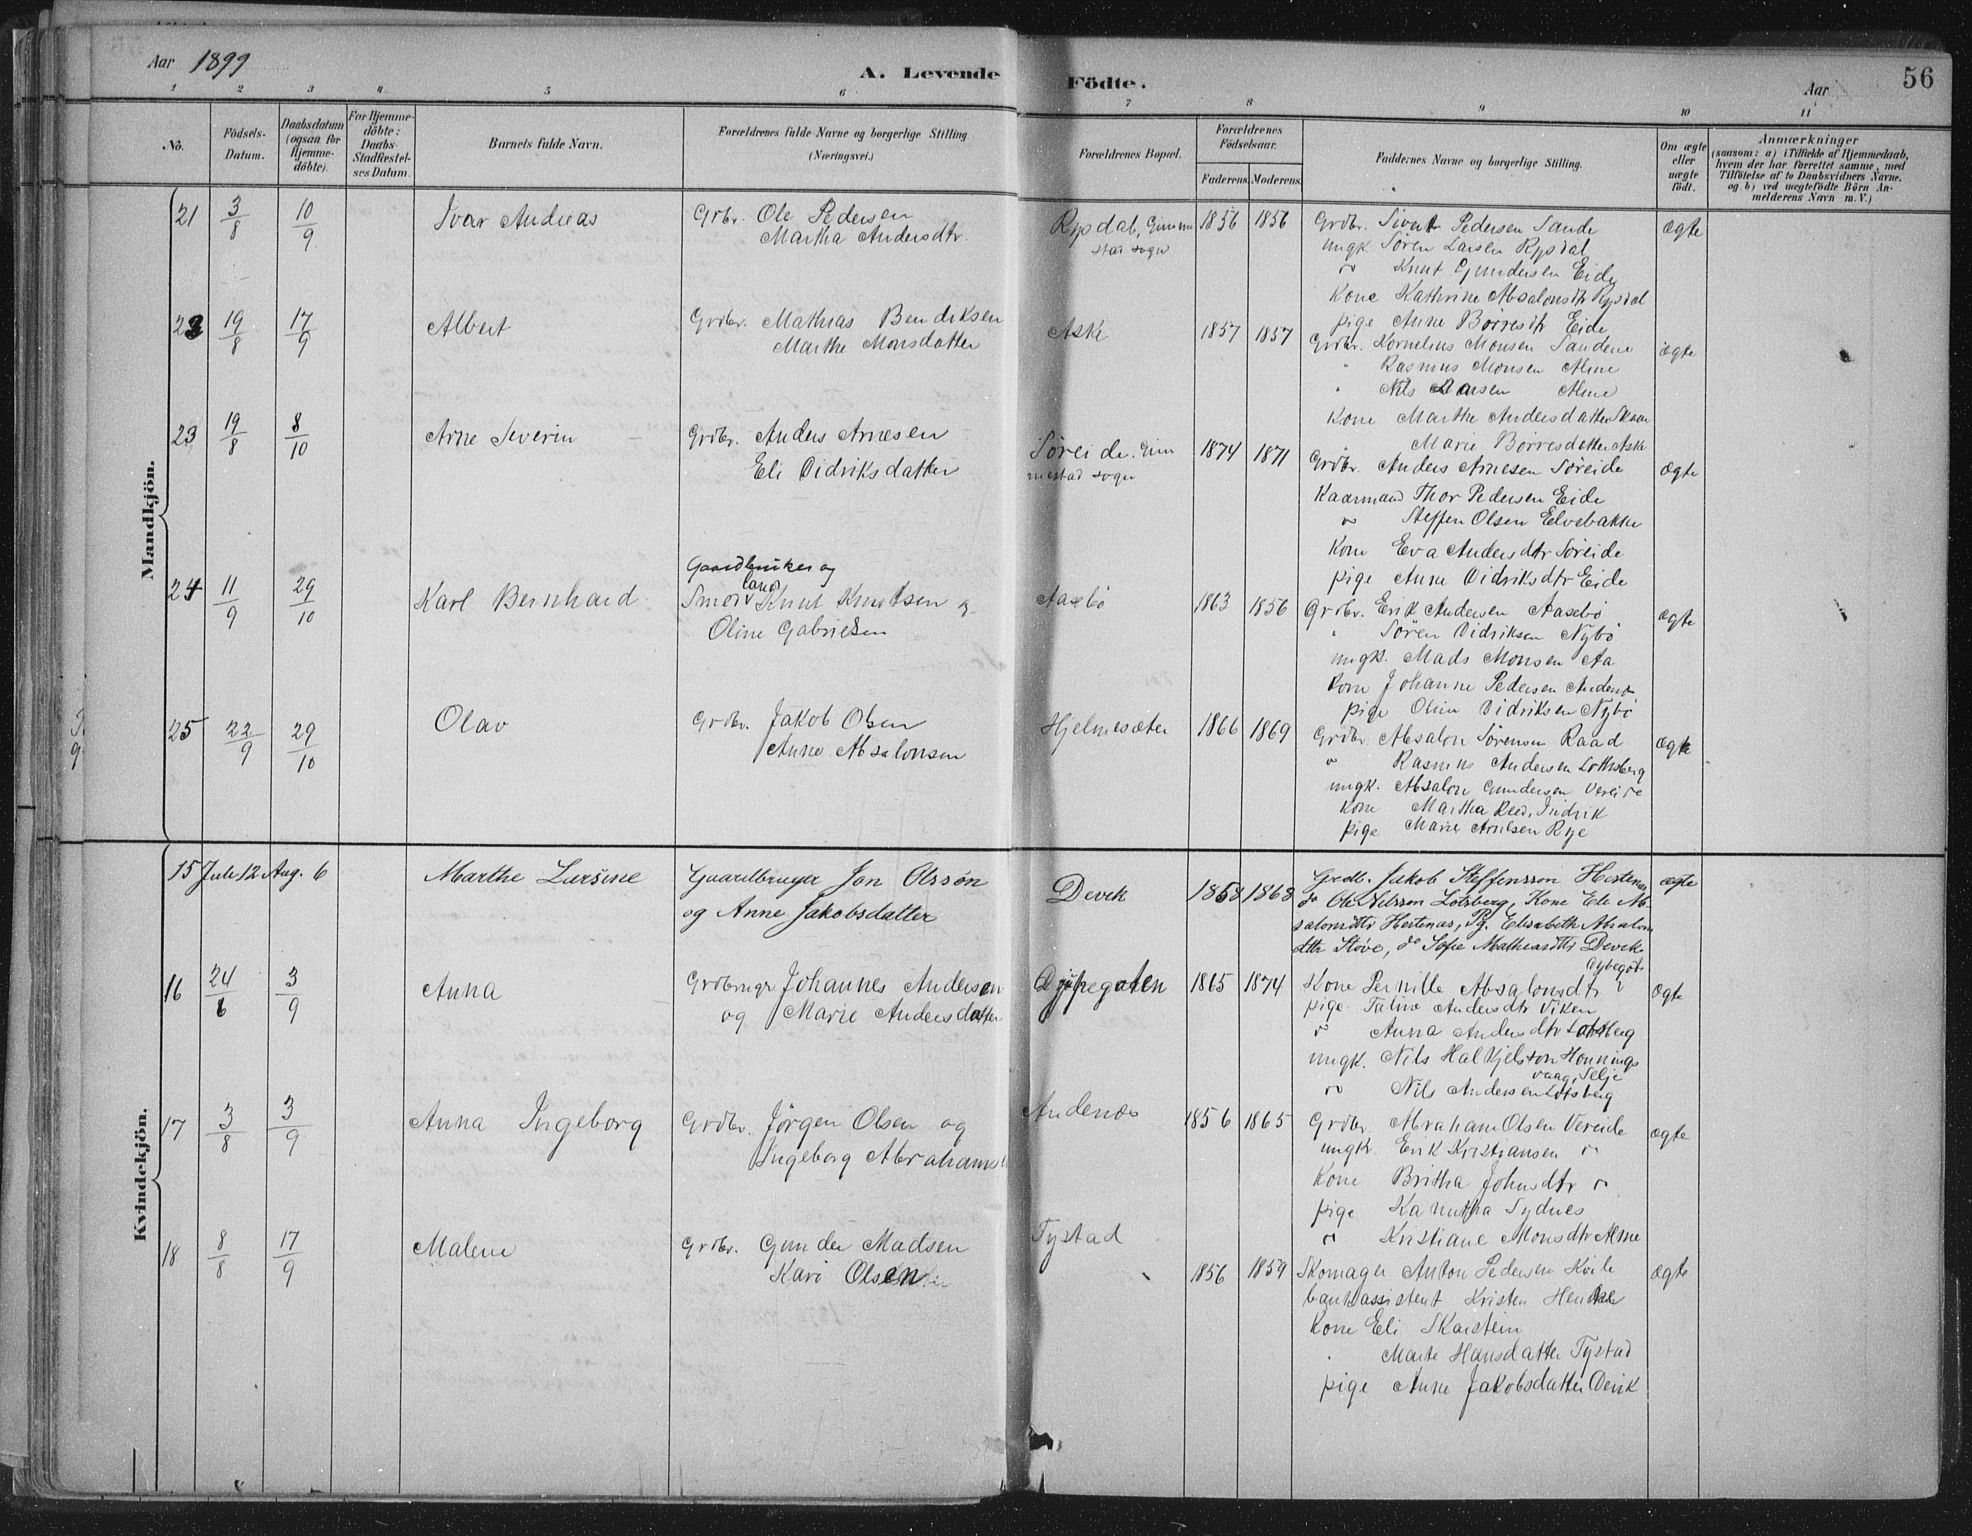 Aar 1899 A. Levende Födte. Aar 56
1 2 3 4 5 6 7 8 9 10 11
No. Födsels-Datum. Daabsdatum (ogsaa for Hjemme-döbte). For Hjemme-döbte: Daabs-Stadfæstel-ses Datum. Barnets fulde Navn. Forældrenes fulde Navne og borgerlige Stilling (Næringsvei.) Forældrenes Bopæl. Forældrenes Födselsaar. Faderens Moderens Faddernes Navne og borgerlige Stilling. Om ægte eller uægte födt. Anmærkninger (saasom: a) i Tilfælde af Hjemmedaab, hvem der har forrettet samme, med Tilföielse af to Daabsvidners Navne, og b) ved uægtefödte Börn An-melderens Navn m. V.)
Mandkjön.
21 3/8 10/9 Ivar Andreas Grbr. Ole Pedersen Rysdal, Gimme 1856 1856 Grdbr. Sivert Pedersen Sande ægte
Martha Andersdtr. stad sogn ungk. Søren Larsen Rysdal
" Knut Gundersen Eide
Kone Kathrine Absalonsdtr Rysdal
pige Anne Børresdtr Eide
22 19/8 17/9 Albert Grdbr. Mathias Bendiksen Aske 1857 1857 Grdbr. Kornelius Monsen Sandene ægte
Marthe Monsdatter " Rasmus Monsen Alme
" Nils Larsen Alme
Kone Marthe Andersdatter Skaar
" Marie Børresdatter Aske
23 19/8 8/10 Arne Severin Grdbr. Anders Arnesen Søreide, Gim 1874 1871 Grdbr. Anders Arnesen Søreide ægte
Eli Didriksdatter mestad sogn Kaarmand Thor Pedersen Eide
" Steffen Olsen Elvebakke
Kone Eva Andersdtr Søreide
pige Anne Didriksdtr Eide
24 11/9 29/10 Karl Bernhard Gaardbruker og
Knut Knutsen og Aasebö 1863 1856 Grdbr. Erik Andersen Aasebö ægte
Oline Gabrielsen " Søren Didriksen Nybö
ungk. Mads Monsen Aa
Kone Johanne Pedersen Andenes
pige Oline Didriksen Nybö
25 22/9 29/10 Olav Grdbr. Jakob Olsen Hjelmesæter 1866 1869 Grdbr. Absalon Sørensen Raad ægte
Anne Absalonsen " Rasmus Andersen Lothsberg
ungk. Absalon Gundersen Vereide
Kone Martha Reed, Indrik
pige Marie Arnesen Rye
Kvindekjön.
15 Juli 12 Aug. 6 Marthe Lursine Gaardbruger Jon Olssøn Devik 1858 1868 Grdb. Jakob Steffensson Hestenes ægte
og Anne Jakobsdatter do Ole Nilssøn Lotsberg, Kone Eli Ab
salonsdttr Hestenæs, Pg. Elisabeth Absalon
dttr Støve, do Sofie Mathiasdttr Devik
16 24/6 3/9 Anna Grdbruger Johannes Andersen Dypegoten 1865 1874 Kone Pernille Absalonsdtr Dybegot ægte
og Marie Andersdatter pige Taline Andersdtr Viken
" Anna Andersdtr Lotsberg
ungk. Nils Hal Kjelson Honnings
vaag, Selje
" Nils Andersen Lotsberg
17 3/8 3/9 Anna Ingeborg Grdbr. Jørgen Olsen og Andenæs 1856 1865 Grdbr. Abraham Olsen Vereide ægte
Ingeborg Abrahams ungkr. Erik Kristiansen "
Kone Britha Johnsdtr "
pige Kanutha Sydnes
" Kristiane Monsdtr Alme
18 8/8 17/9 Malene Grdbr. Gunder Madsen Tystad
Kari Olsen 1856 1859 Skomager Anton Pedersen Hvile ægte
bankassistent Kristen Henkel
Kone Eli Skarstein
" Marte Hansdatter Tystad
pige Anne Jakobsdatter Devik